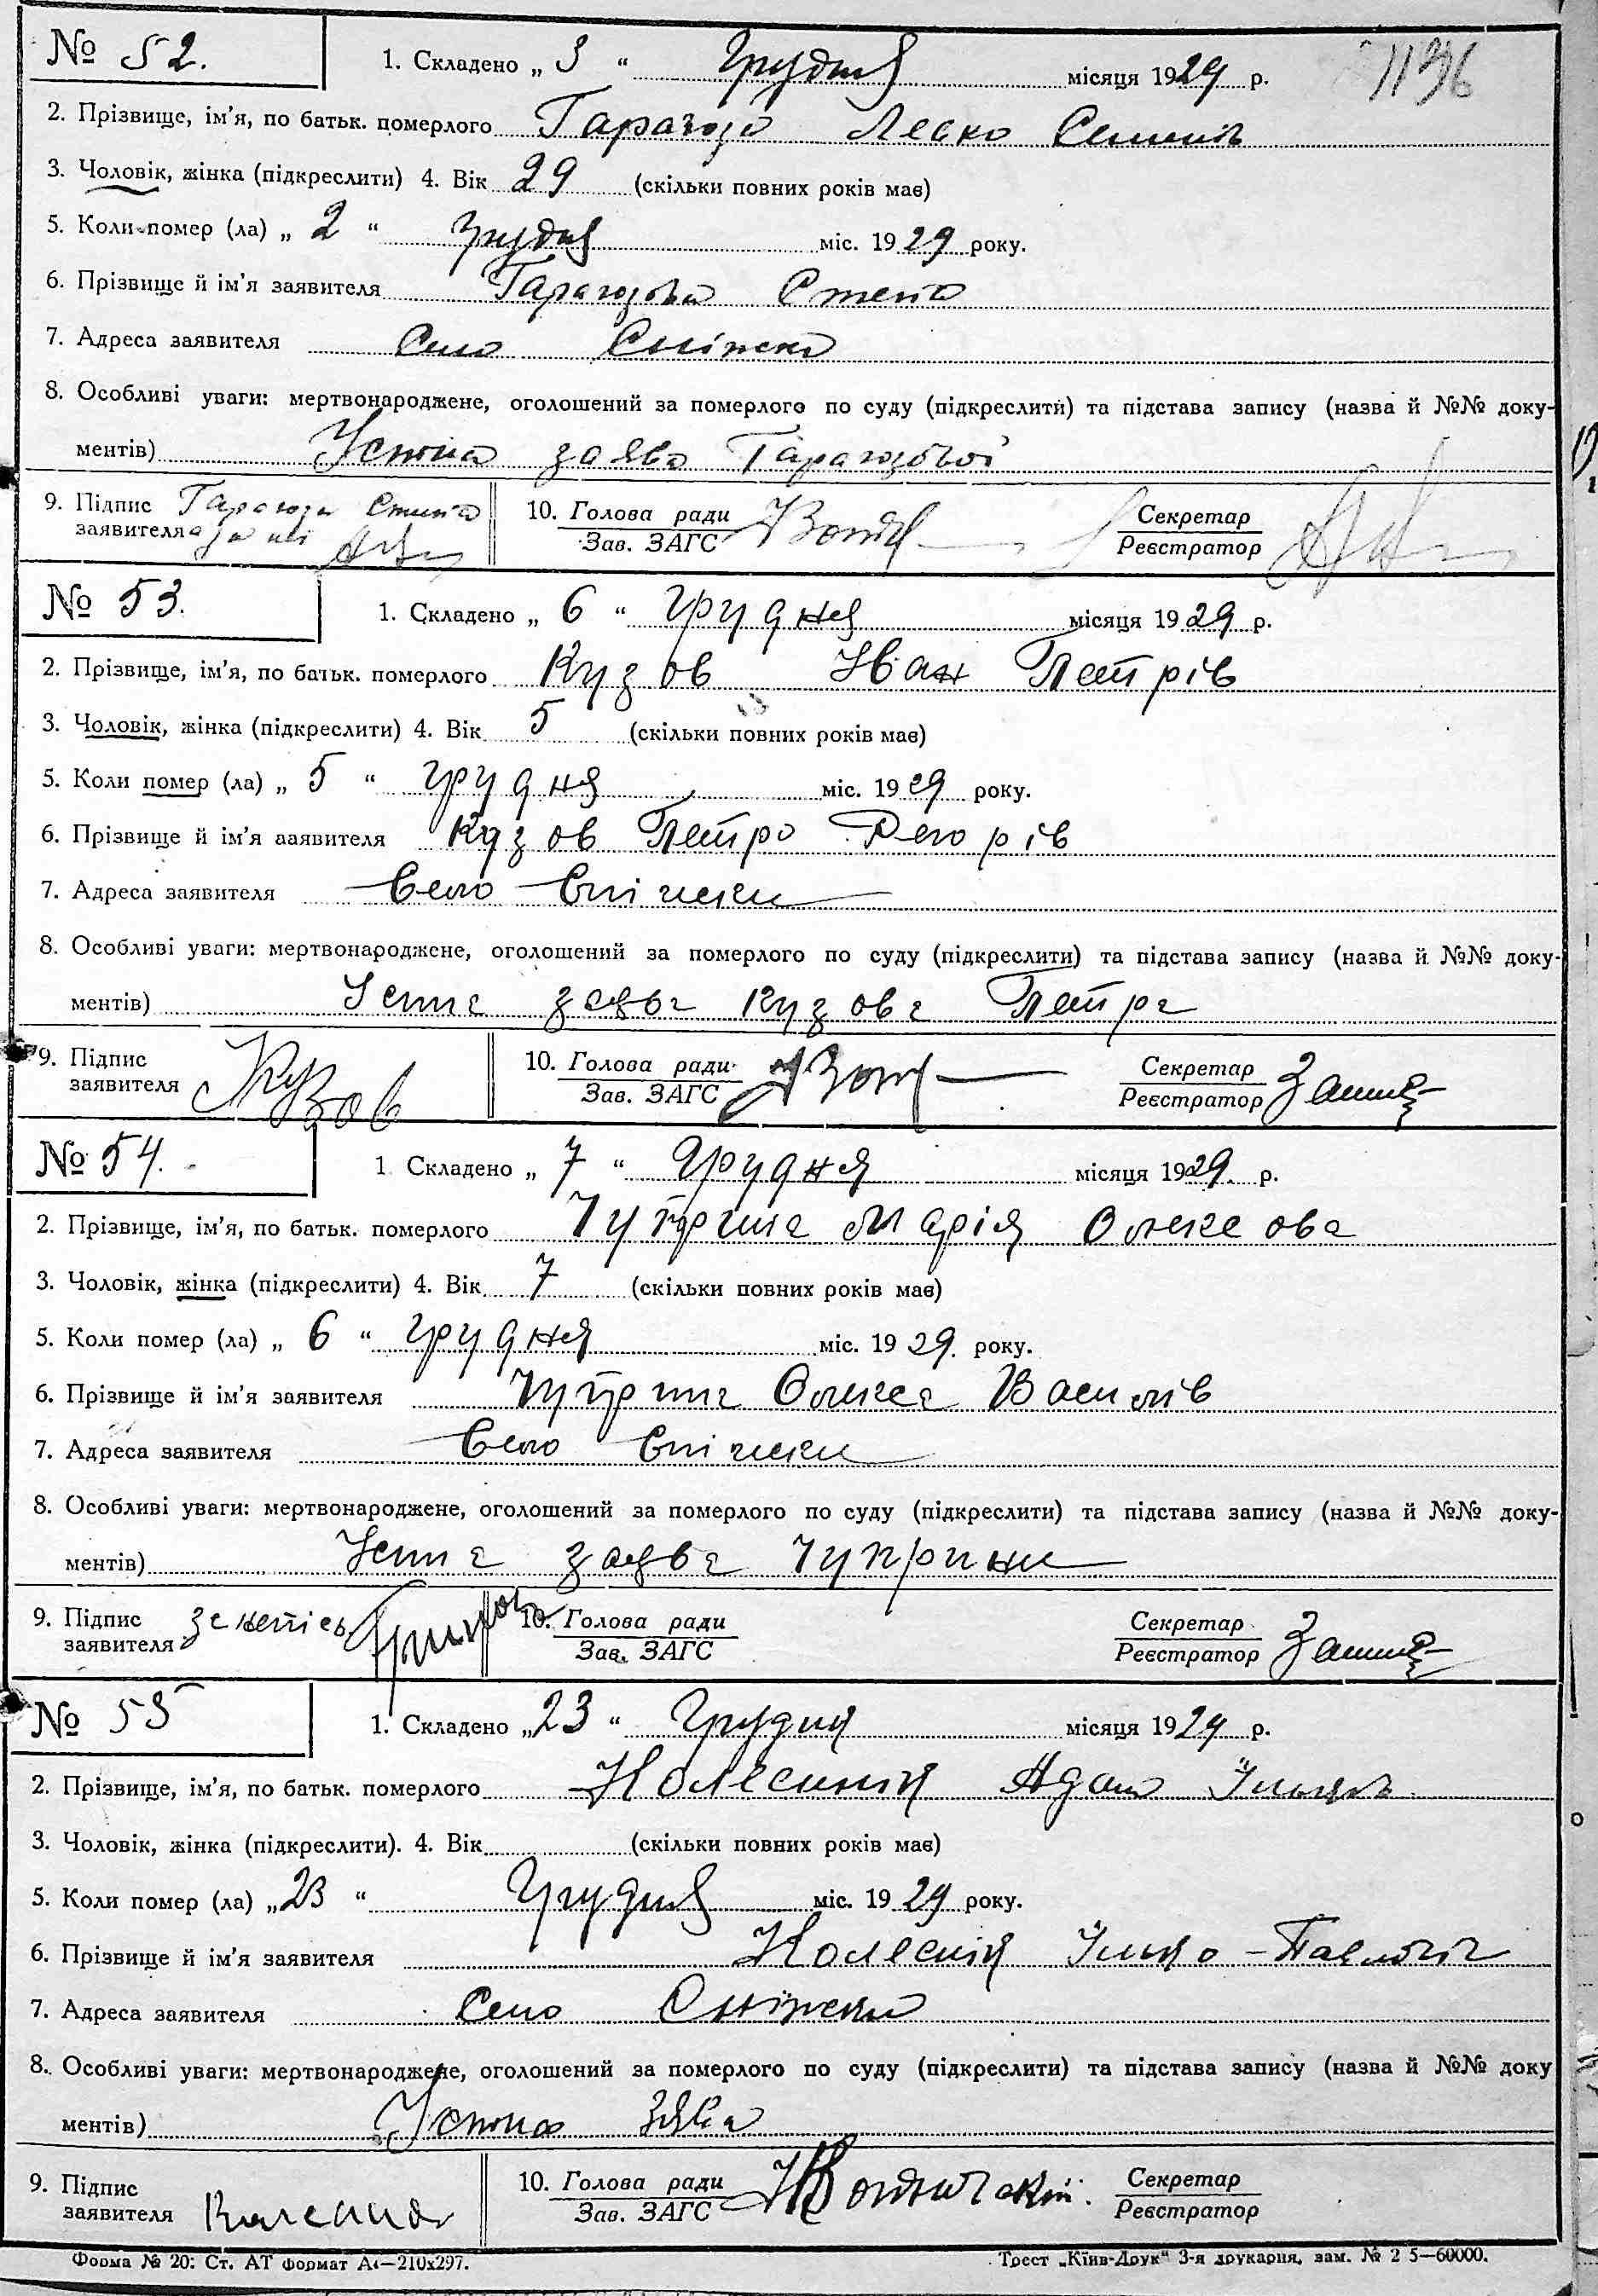 № 52. 1. Складено „ 3 “ Грудня місяця 1929 р. 1136
2. Прізвище, ім'я, по батьк. померлого Гарагоза Леско Семенів
3. Чоловік, жінка (підкреслити) 4. Вік 29 (скільки повних років має)
5. Коли помер (ла) „ 2 “ Грудня міс. 1929 року.
6. Прізвище й ім'я заявителя Гарагозова Степа
7. Адреса заявителя Село Сніжки
8. Особливі уваги: мертвонароджене, оголошений за померлого по суду (підкреслити) та підстава запису (назва й №№ доку-
ментів) Устна заява Гарагозової
9. Підпис заявителя Гарагоза 10. Голова ради Зав. ЗАГС Секретар Реєстратор
№ 53. 1. Складено „ 6 “ грудня місяця 1929 р.
2. Прізвище, ім'я, по батьк. померлого Кузов Іван Петрів
3. Чоловік, жінка (підкреслити) 4. Вік 5 (скільки повних років має)
5. Коли помер (ла) „ 5 “ грудня міс. 1929 року.
6. Прізвище й ім'я ааявителя Кузов Петро Регорів
7. Адреса заявителя Село Сніжки
8. Особливі уваги: мертвонароджене, оголошений за померлого по суду (підкреслити) та підстава запису (назва й №№ доку-
ментів) Устна заява Кузова Петра
9. Підпис заявителя Кузов 10. Голова ради Зав. ЗАГС Секретар Реєстратор
№ 54. 1. Складено „ 7 “ Грудня місяця 1929. р.
2. Прізвище, ім'я, по батьк. померлого Чуприна Марія Олексова
3. Чоловік, жінка (підкреслити) 4. Вік 7 (скільки повних років має)
5. Коли помер (ла) „ 6 “ грудня міс. 1929. року.
6. Прізвище й ім'я заявителя Чуприна Олекса Василів
7. Адреса заявителя Село Сніжки
8. Особливі уваги: мертвонароджене, оголошений за померлого по суду (підкреслити) та підстава запису (назва й №№ доку-
ментів) Устна заява Чуприни
9. Підпис заявителя 10. Голова ради Зав. ЗАГС Секретар Реєстратор
№ 55 1. Складено „23 “ Грудня місяця 1929 р.
2. Прізвище, ім'я, по батьк. померлого Колесник Адам Ільків
3. Чоловік, жінка (підкреслити). 4. Вік (скільки повних років має)
5. Коли помер (ла) „23 “ Грудня міс. 1929 року.
6. Прізвище й ім'я заявителя Колесник Ілько-Павлович
7. Адреса заявителя Село Сніжки
8. Особливі уваги: мертвонароджене, оголошений за померлого по суду (підкреслити) та підстава запису (назва й №№ доку
ментів) Устна
9. Підпис заявителя 10. Голова ради Зав. ЗАГС Секретар Реєстратор
Форма № 20: Ст. АТ формат А4—210х297. Трест „Київ-Друк“ 3-я друкарня, зам. № 2 5—60000.